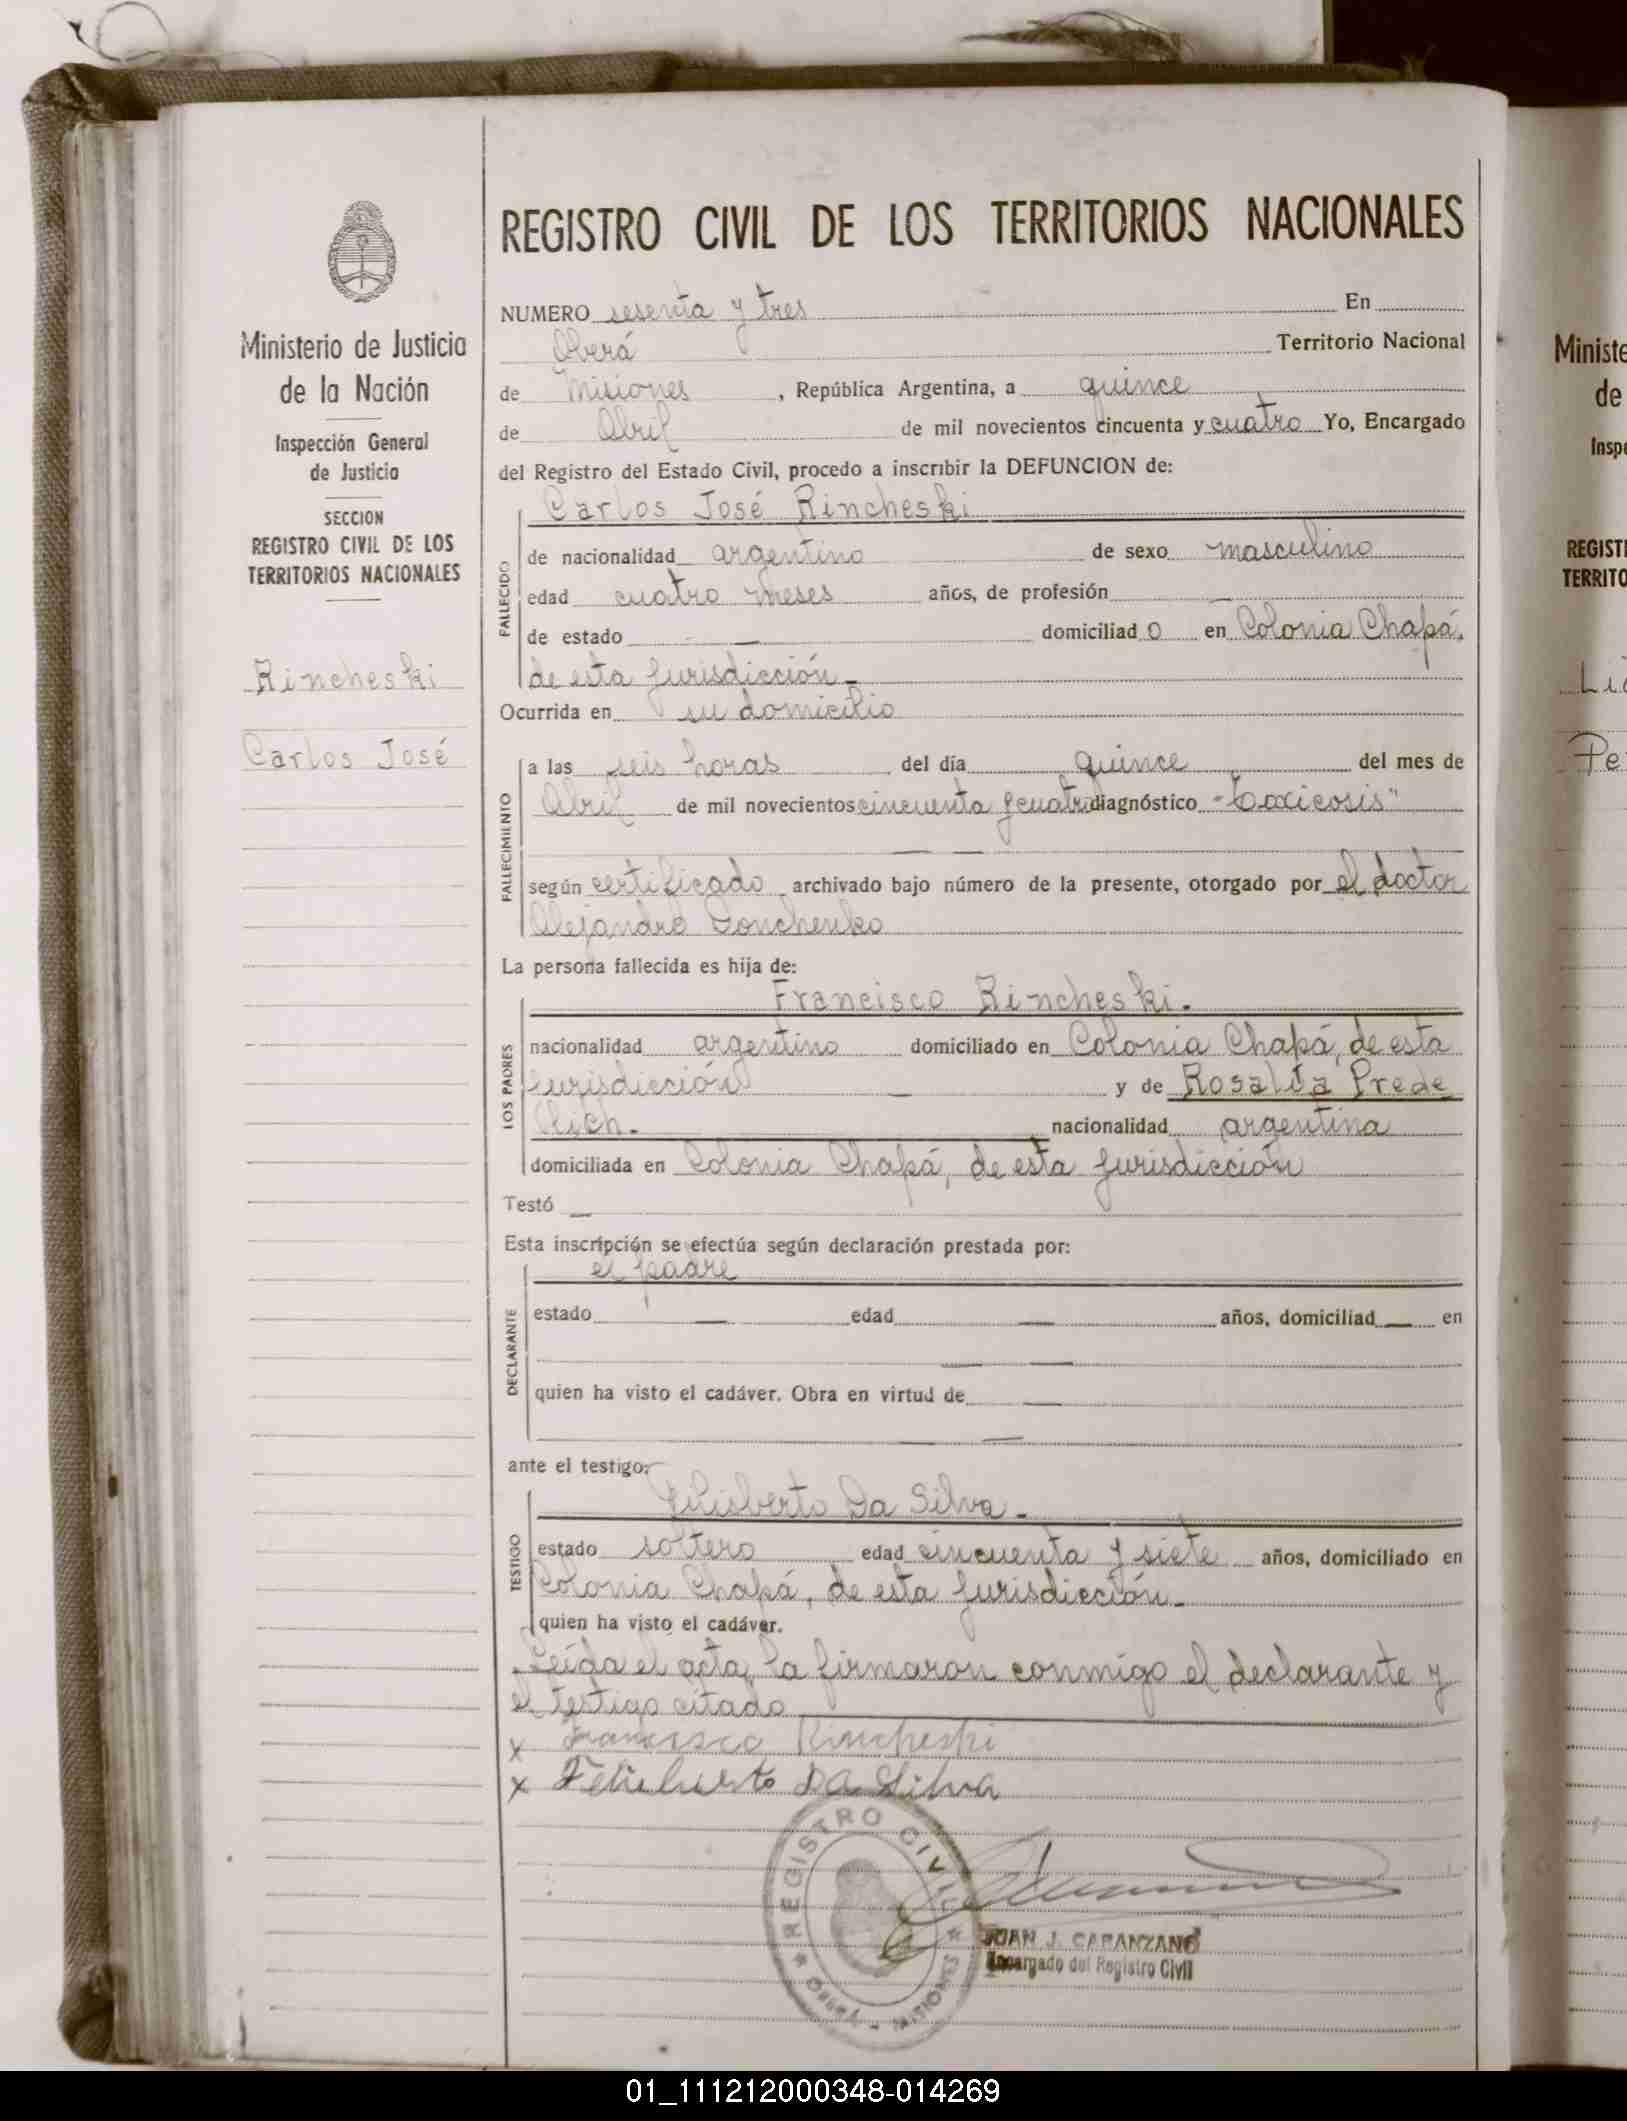 REGISTRO CIVIL DE LOS TERRITORIOS NACIONALES
Ministerio de Justicia
de la Nación
Inspección General
de Justicia
SECCION
REGISTRO CIVIL DE LOS
TERRITORIOS NACIONALES
Rincheski
Carlos José
NUMERO sesenta y tres En
Oberá Territorio Nacional
de Misiones, República Argentina, a quince
de Abril de mil novecientos cincuenta y cuatro Yo, Encargado
del Registro del Estado Civil, procedo a inscribir la DEFUNCION de:
FALLECIDO
Carlos José Rincheski
de nacionalidad argentino de sexo masculino
edad cuatro meses años, de profesión —
de estado — domiciliado en Colonia Chapá,
de esta jurisdicción.-
Ocurrida en su domicilio
FALLECIMIENTO
a las seis horas del día quince del mes de
Abril de mil novecientos cincuenta y cuatro diagnóstico "Toxicosis"
— —
según certificado archivado bajo número de la presente, otorgado por el doctor
Alejandro
La persona fallecida es hija de:
LOS PADRES
Francisco Rincheski.
nacionalidad argentino domiciliado en Colonia Chapá, de esta
jurisdicción — y de Rosalía Prede
nacionalidad argentina
domiciliada en Colonia Chapá, de esta jurisdicción
Testó —
Esta inscripción se efectúa según declaración prestada por:
DECLARANTE
el padre
estado — edad — años, domiciliad — en
— —
quien ha visto el cadáver. Obra en virtud de —
— —
ante el testigo:
TESTIGO
Da Silva.-
estado soltero edad cincuenta y siete años, domiciliado en
Colonia Chapá, de esta jurisdicción.-
quien ha visto el cadáver.
Leída el acta, la firmaron conmigo el declarante y
el testigo citado
x Francisco Rincheski
x Da Silva
REGISTRO CIVIL
OBERÁ - MISIONES
JUAN J. CARANZANO
Encargado del Registro Civil
Ministe
de
Inspe
REGISTI
TERRITO
Pe
01_111212000348-014269